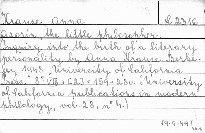 Krause, Anna C 2316
Azorín, the little philosopher.
Inquiry into the birth of a literary
personality by Anna Krause. Berke-
ley 1948, University of California
Press. 8º VII + 127 + 159-280. (University
of California publications in modern
philology, vol. 28, nº 4.)